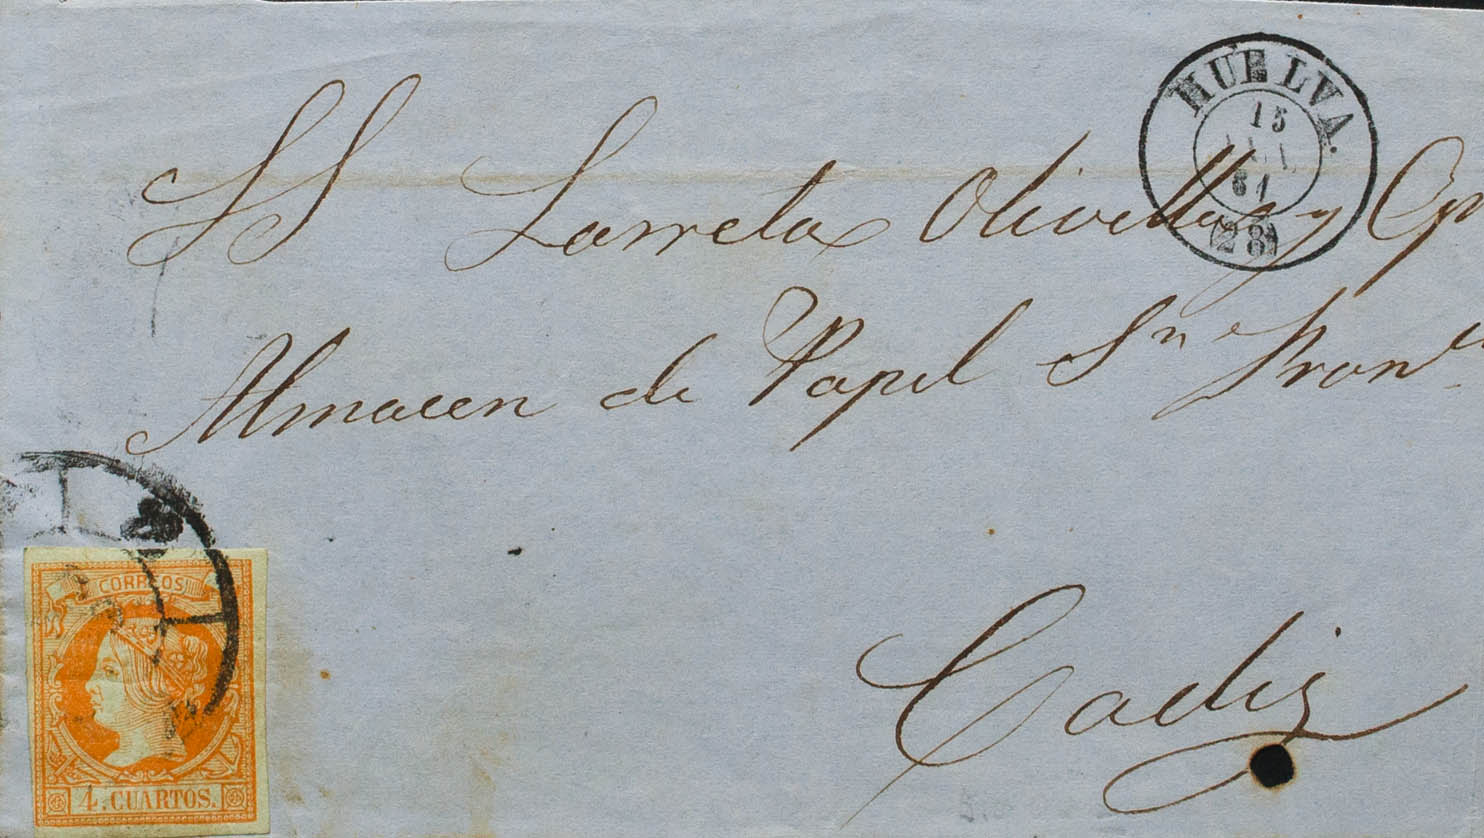 HUELVA.
15
JUL
61
(28)
SS Larreta Olivella y Cpª
Almacen de Papel Sn
Cadiz
CORREOS
4. CUARTOS.